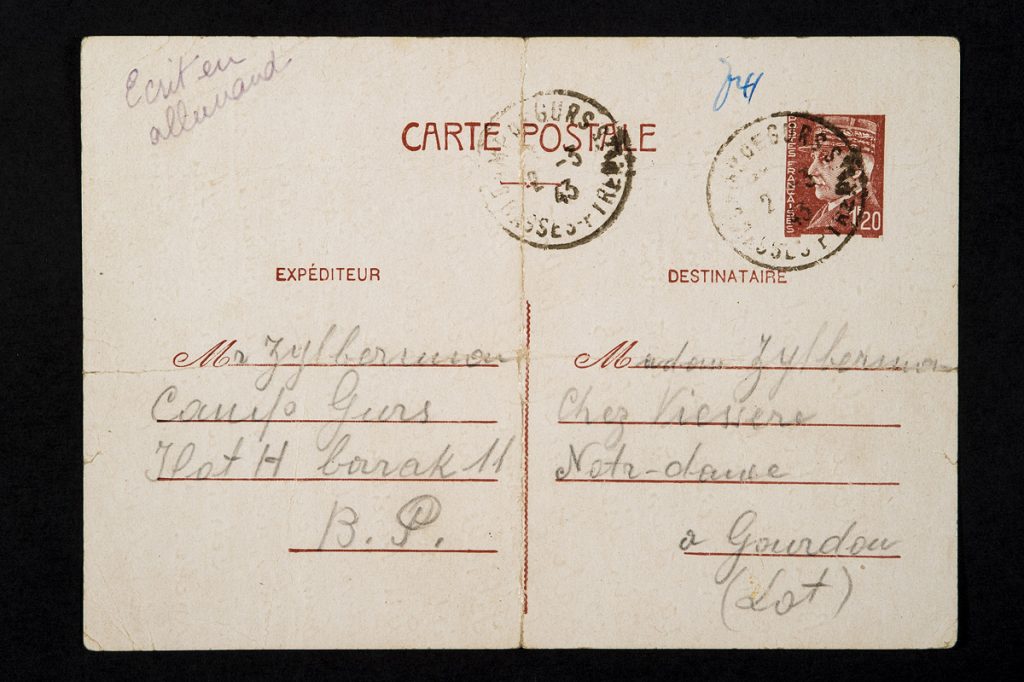 Ecrit en
allemand
CARTE POSTALE
CAMP DE GURS
2 -3
43
BASSES-PYRENEES
CAMP DE GURS
2 -3
43
BASSES-PYRENEES
POSTES FRANÇAISES
1F20
EXPÉDITEUR
Mr Zylberman
Camp Gurs
Ilot H barak 11
B. P.
DESTINATAIRE
Madam Zylberman
Chez
Notr-dame
a Gourdou
(Lot)